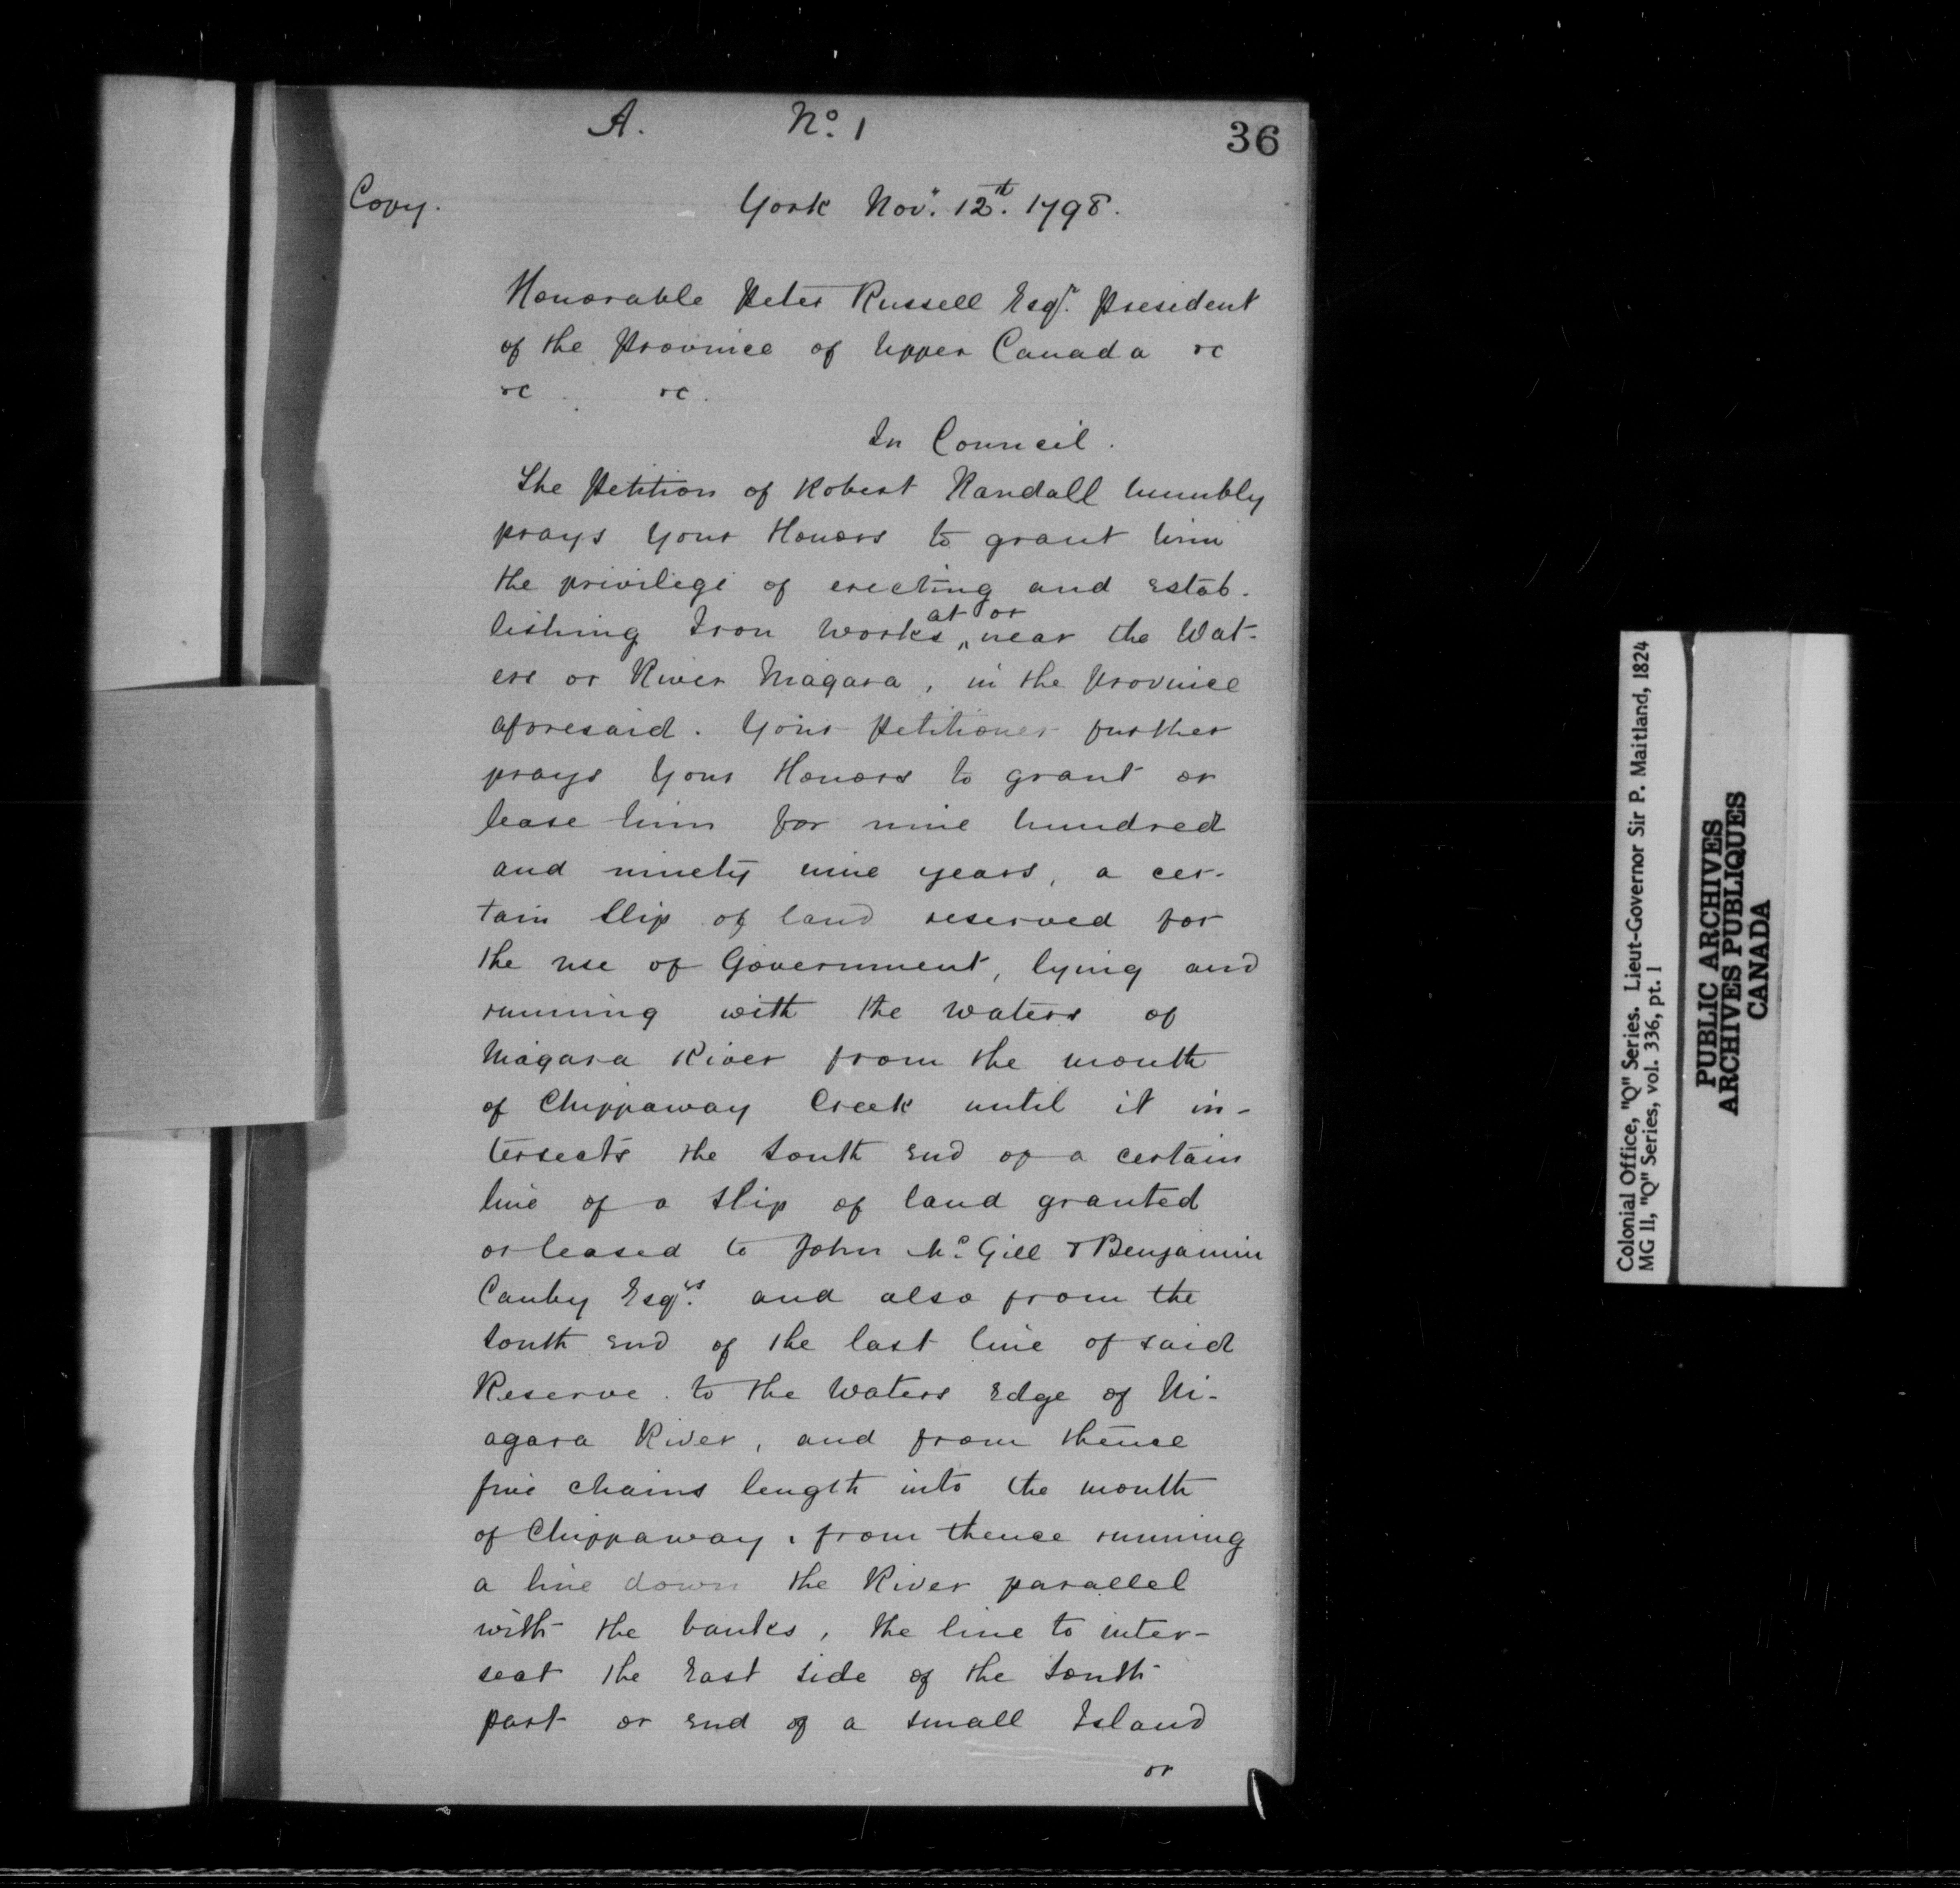 A. No. 1
36
Copy.
York Novr. 12th. 1798.
Honorable Peter Russell Esqr. President
of the Province of Upper Canada &c
&c. &c.
In Council.
The Petition of Robert Randall humbly
prays Your Honors to grant him
the privilege of erecting and estab-
lishing Iron Works, at or near the Wat-
ers or River Niagara, in the Province
aforesaid. Your Petitioner further
prays Your Honors to grant or
lease him for nine hundred
and ninety nine years, a cer-
tain slip of land reserved for
the use of Government, lying and
running with the waters of
Niagara River from the mouth
of Chippaway Creek until it in-
tersects the South end of a certain
line of a slip of land granted
or leased to John McGill & Benjamin
Canby Esqrs. and also from the
South end of the last line of said
Reserve to the Waters Edge of Ni-
agara River, and from thence
five chains length into the mouth
of Chippaway, from thence running
a line down the River parallel
with the banks, the line to inter-
sect the East side of the South
part or end of a small Island
or
Colonial Office, "Q" Series. Lieut-Governor Sir P. Maitland, 1824
MG 11, "Q" Series, vol. 336, pt. 1
PUBLIC ARCHIVES
ARCHIVES PUBLIQUES
CANADA